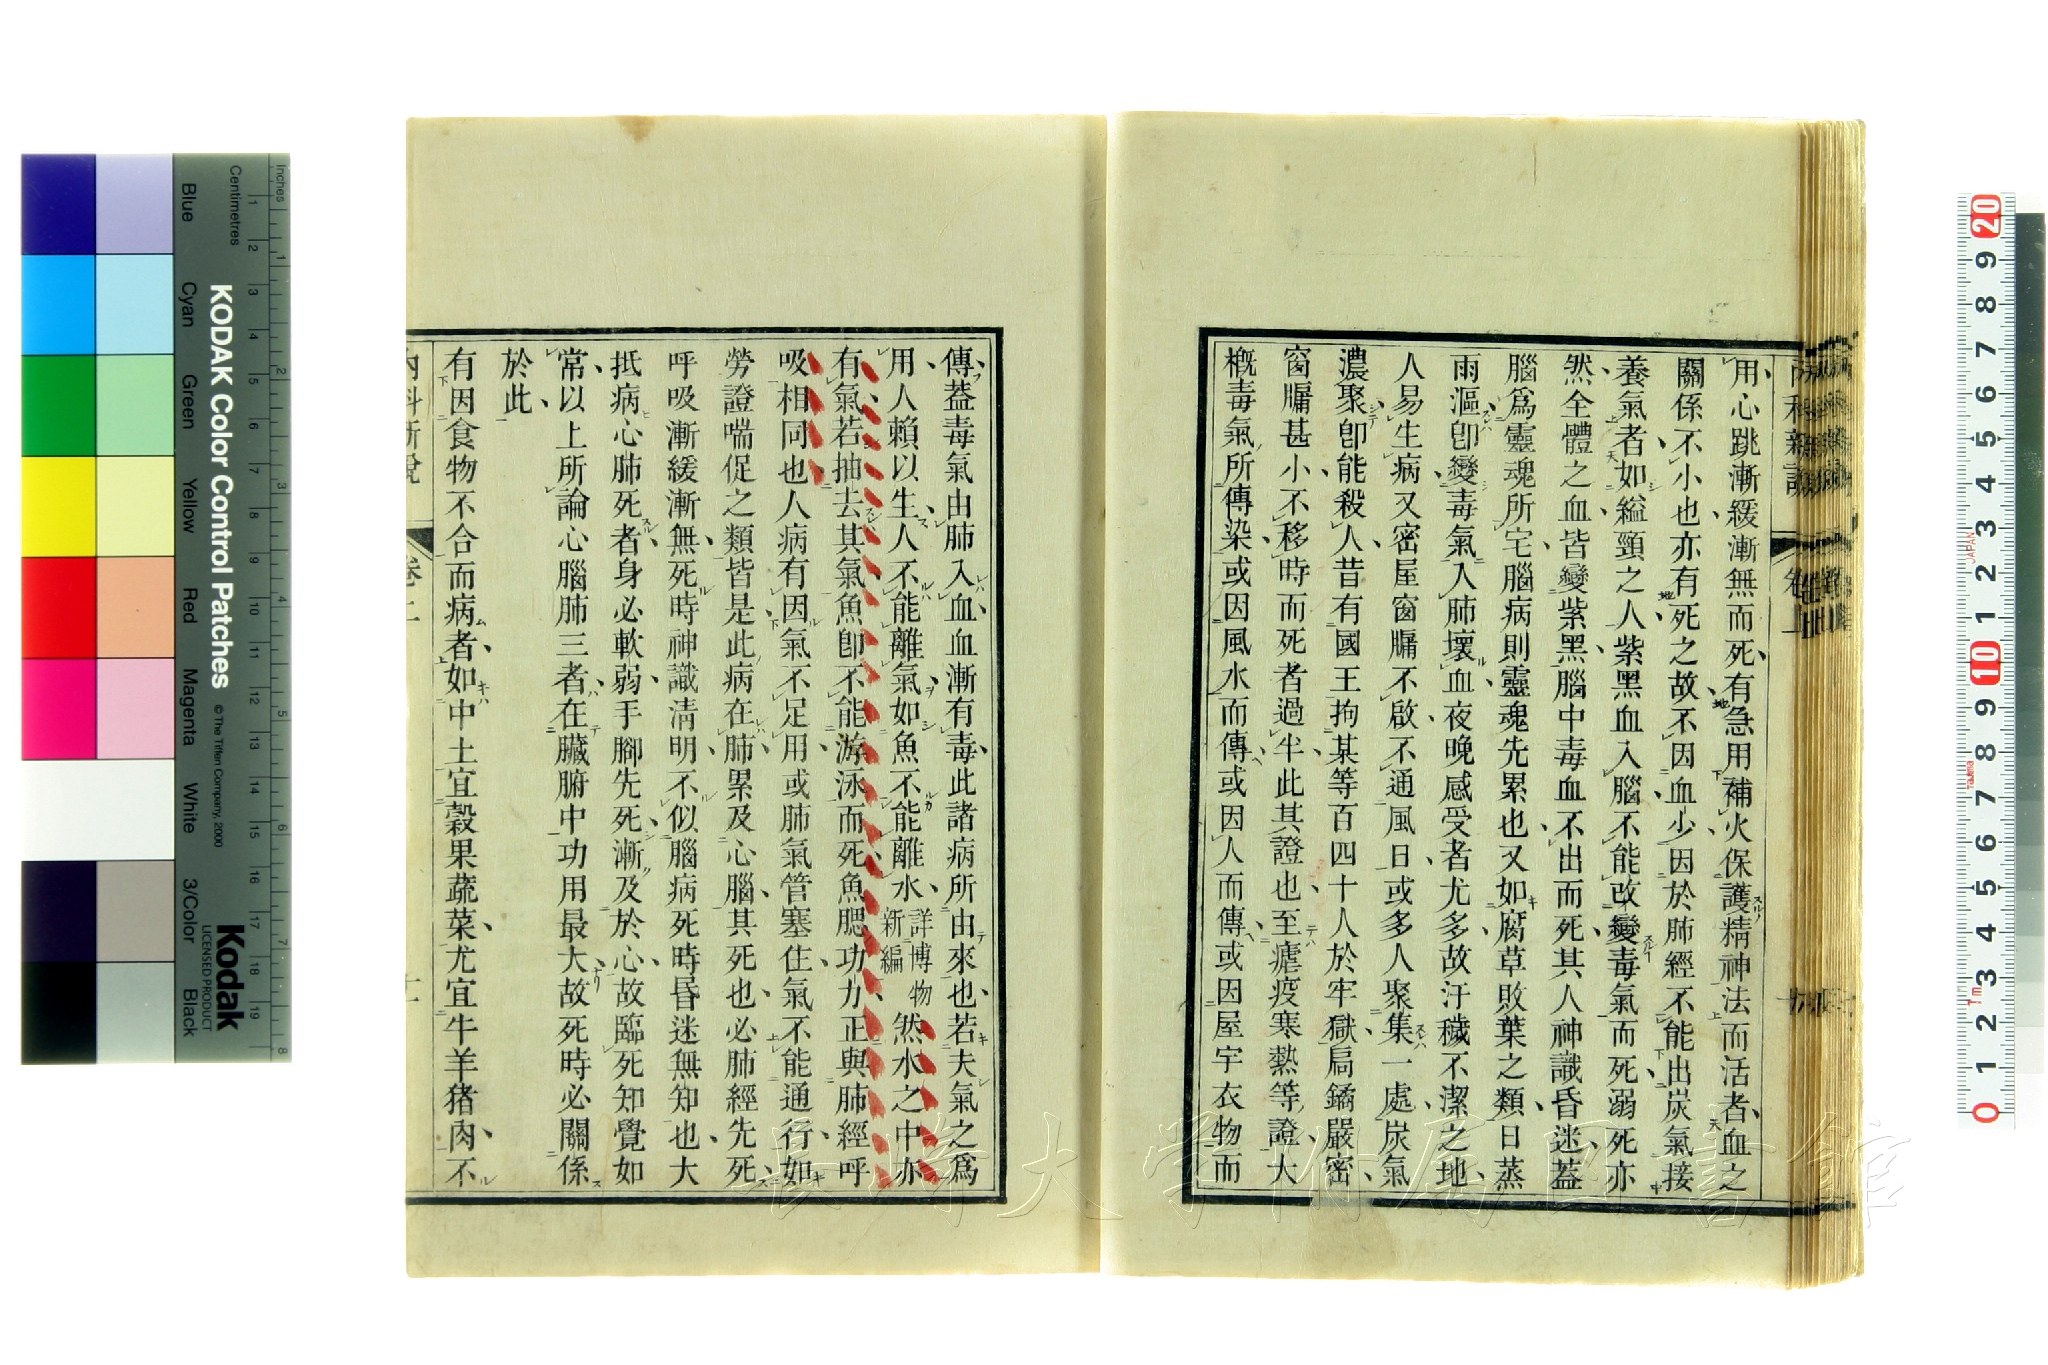 用心跳漸緩漸無而死有急用補火保護精神法而活者血之
關係不小也亦有死之故不因血少因於肺經不能出炭氣接
養氣者如縊頸之人紫黑血入腦不能改變毒氣而死溺死亦
然全體之血皆變紫黑腦中毒血不出而死其人神識昏迷蓋
腦爲靈魂所宅腦病則靈魂先累也又如腐草敗葉之類日蒸
雨漚卽變毒氣入肺壞血夜晚感受者尤多故汗穢不潔之地
人易生病又密屋窗牗不啟不通風日或多人聚集一處炭氣
濃聚卽能殺人昔有國王拘某等百四十人於牢獄扃鐍嚴密
窗牗甚小不移時而死者過半此其證也至瘧疫寒熱等證大
槪毒氣所傳染或因風水而傳或因人而傳或因屋宇衣物而
傳葢毒氣由肺入血血漸有毒此諸病所由來也若夫氣之爲
用人賴以生人不能離氣如魚不能離水詳博物新編然水之中亦
有氣若抽去其氣魚卽不能游泳而死魚腮功力正與肺經呼
吸相同也人病有因氣不足用或肺氣管塞住氣不能通行如
勞證喘促之類皆是此病在肺累及心腦其死也必肺經先死
呼吸漸緩漸無死時神識淸明不似腦病死時昏迷無知也大
抵病心肺死者身必軟弱手腳先死漸及於心故臨死知覺如
常以上所論心腦肺三者在臟腑中功用最大故死時必關係
於此
有因食物不合而病者如中土宜穀果蔬菜尤宜牛羊猪肉不
內科新說
卷上
KODAK Color Control Patches
© The Tiffen Company, 2000
Kodak
LICENSED PRODUCT
Inches
Centimetres
Blue
Cyan
Green
Yellow
Red
Magenta
White
3/Color
Black
長崎大学附属図書館
JAPAN